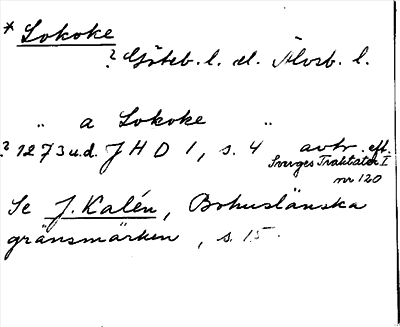 * Lokoke
? Göteb. l. el. Älvsb. l.
" a Lokoke "
? 1273 u.d. J H D 1, s. 4 avtr. eft.
Sveriges Traktater I
nr 120
Se J. Kalén, Bohuslänska
gränsmärken, s. 15.